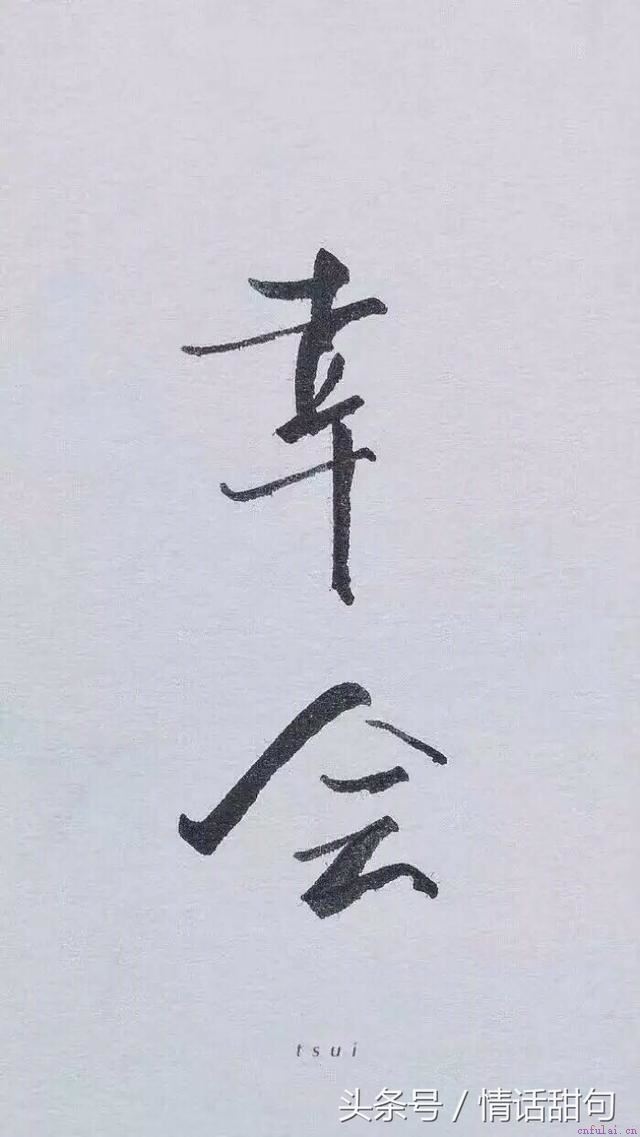 幸
会
tsui
头条号 / 情话甜句
cnfulai.cn